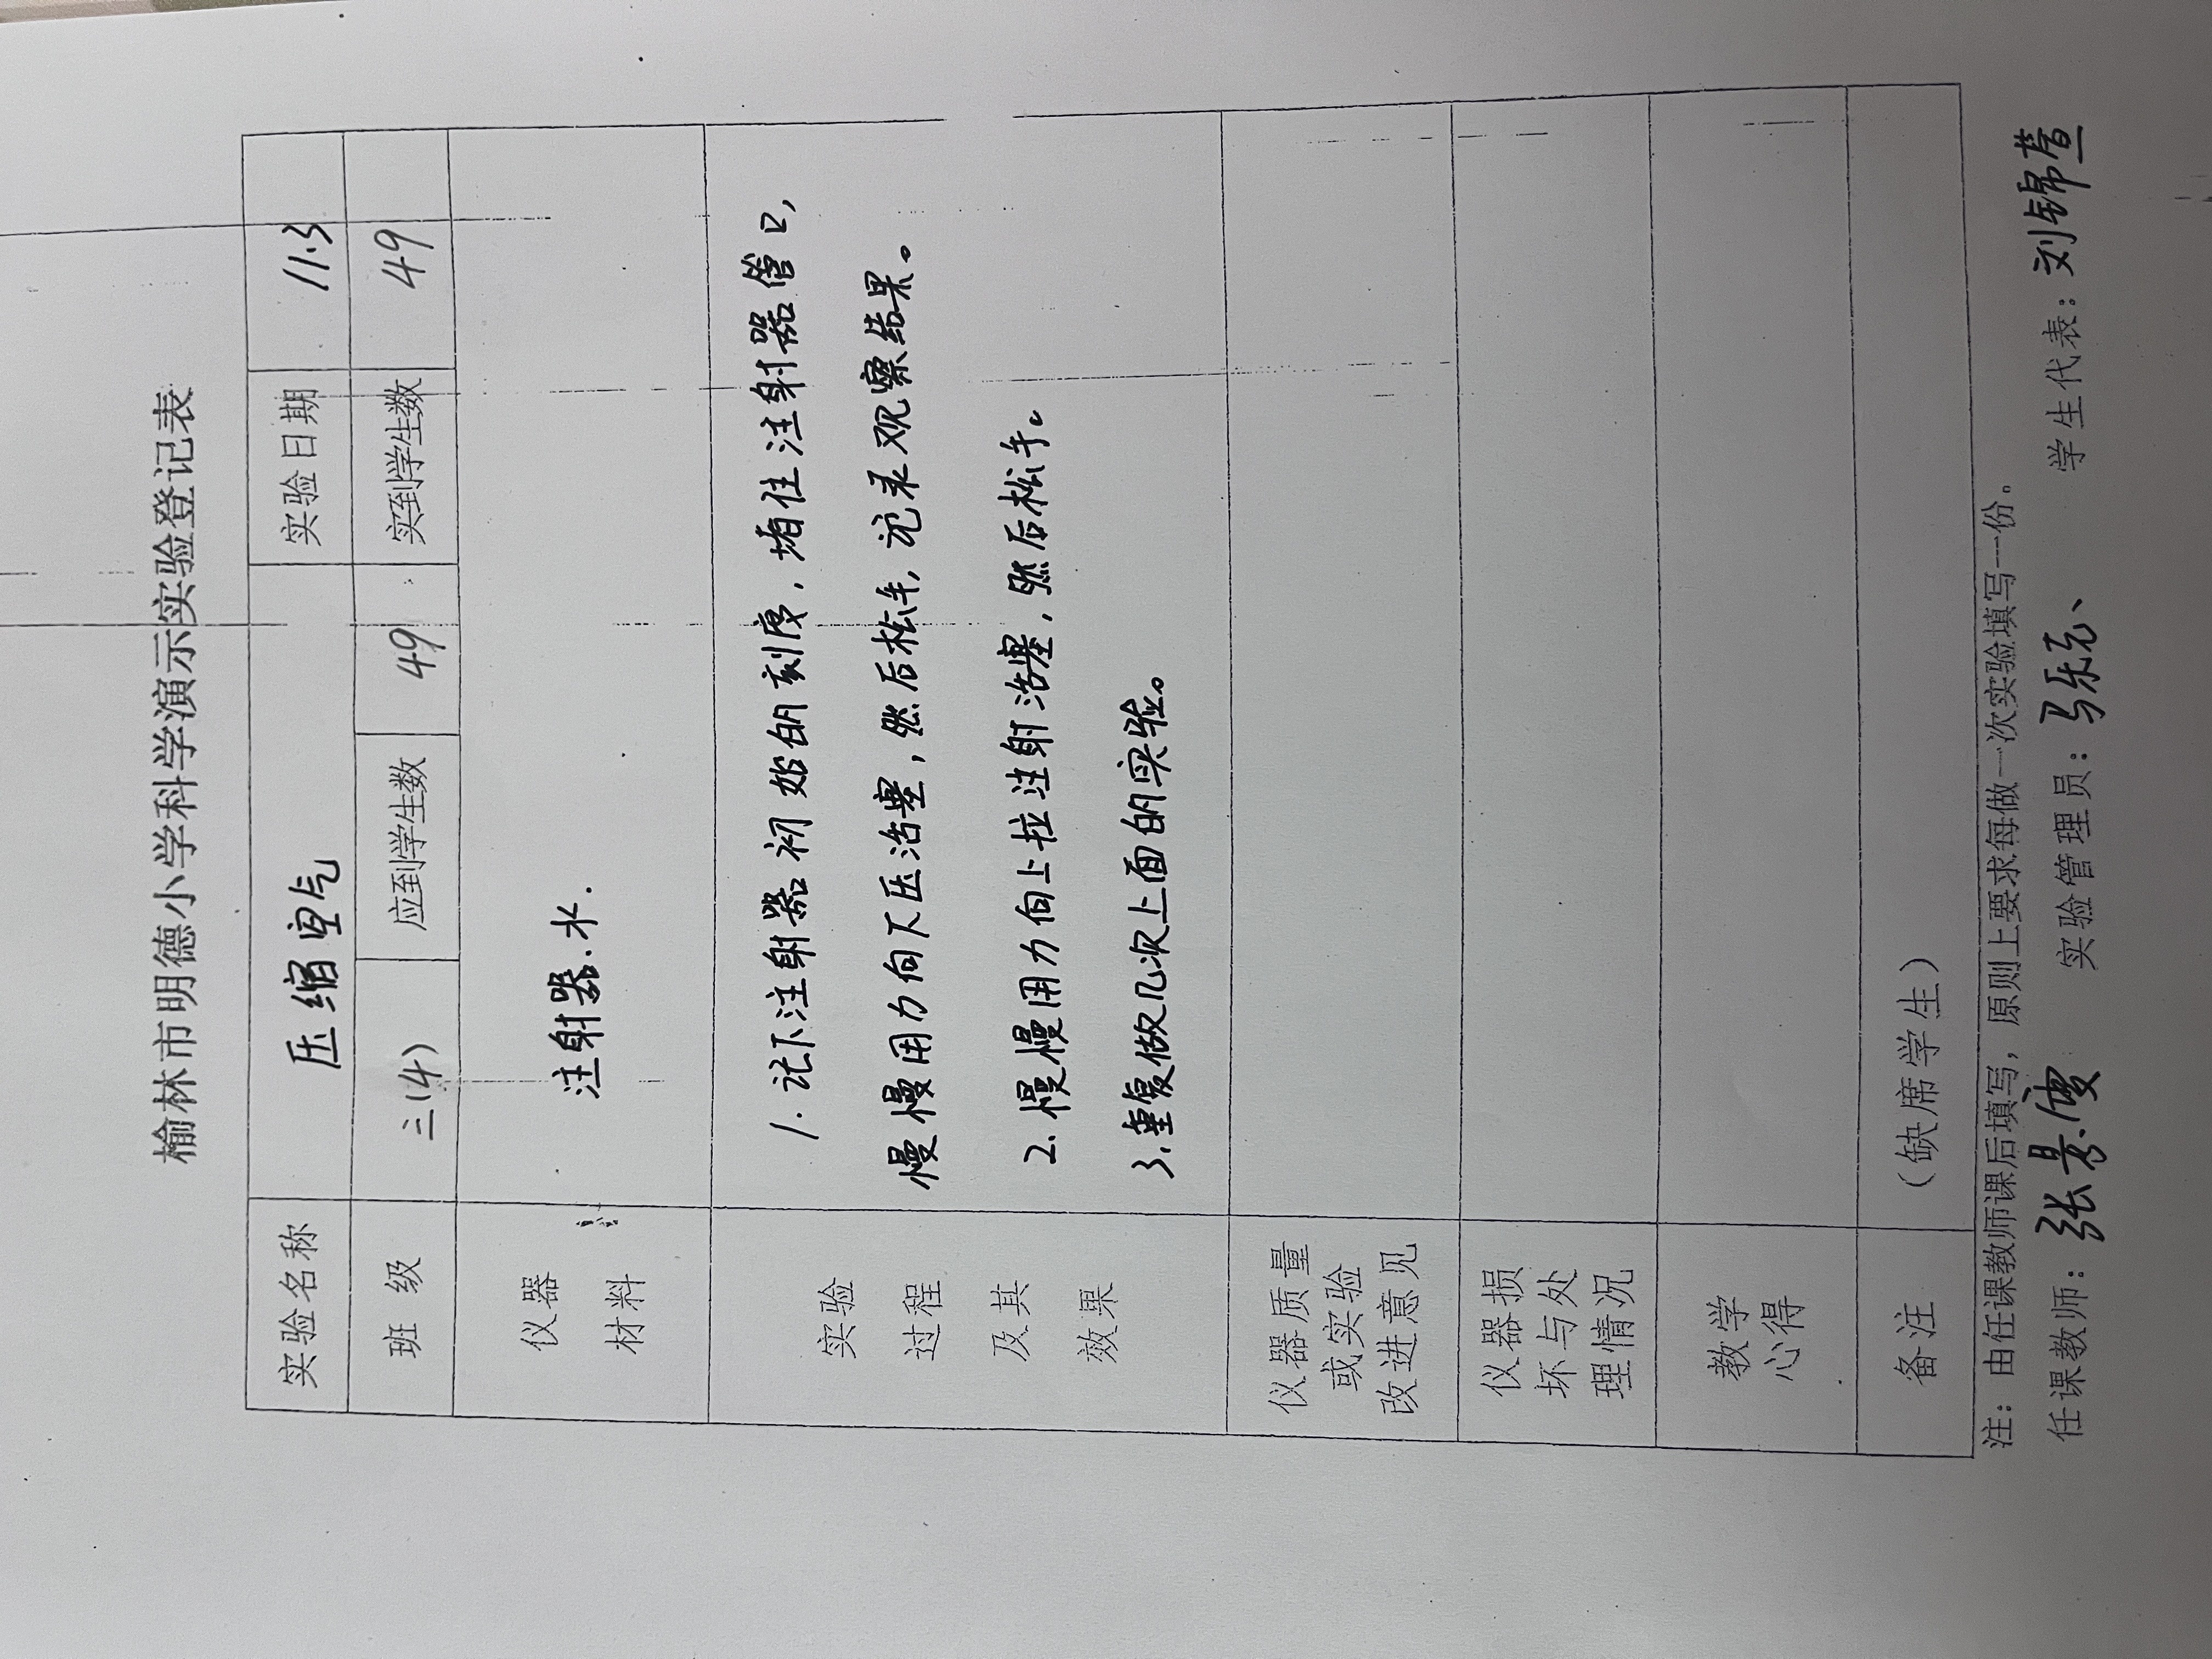 榆林市明德小学科学演示实验登记表
实验名称 压缩空气 实验日期 11.3
班级 三(4) 应到学生数 49 实到学生数 49
仪器 注射器.水.
材料
实验 1.记下注射器初始的刻度,堵住注射器管口,
过程 慢慢用力向下压活塞,然后松手,记录观察结果。
及其 2.慢慢用力向上拉注射活塞,然后松手。
效果 3.重复做几次上面的实验。
仪器质量
或实验
改进意见
仪器损
坏与处
理情况
教学
心得
备注 (缺席学生)
注:由任课教师课后填写,原则上要求每做一次实验填写一份。
任课教师: 张景 实验管理员: 马乐 学生代表: 刘锦萱